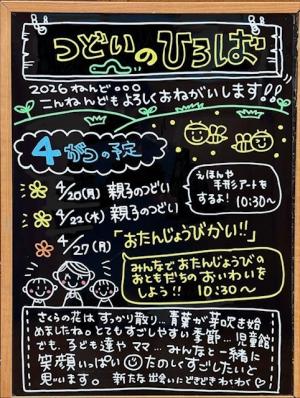 つどいのひろば
2026ねんど。。。
こんねんどもよろしくおねがいします!!
4がつの予定
4/20(月) 親子のつどい
4/22(水) 親子のつどい
えほんや
手形アートを
するよ! 10:30〜
4/27(月)
「おたんじょうびかい!!」
みんなでおたんじょうびの
おともだちのおいわいを
しよう!! 10:30〜
さくらの花はすっかり散り…青葉が芽吹き始
めましたね。とてもすごしやすい季節…児童館
でも、子ども達やママ…みんなと一緒に
笑顔いっぱいたのしくすごしたいと
思います。新たな出会いにどきどきわくわく♡